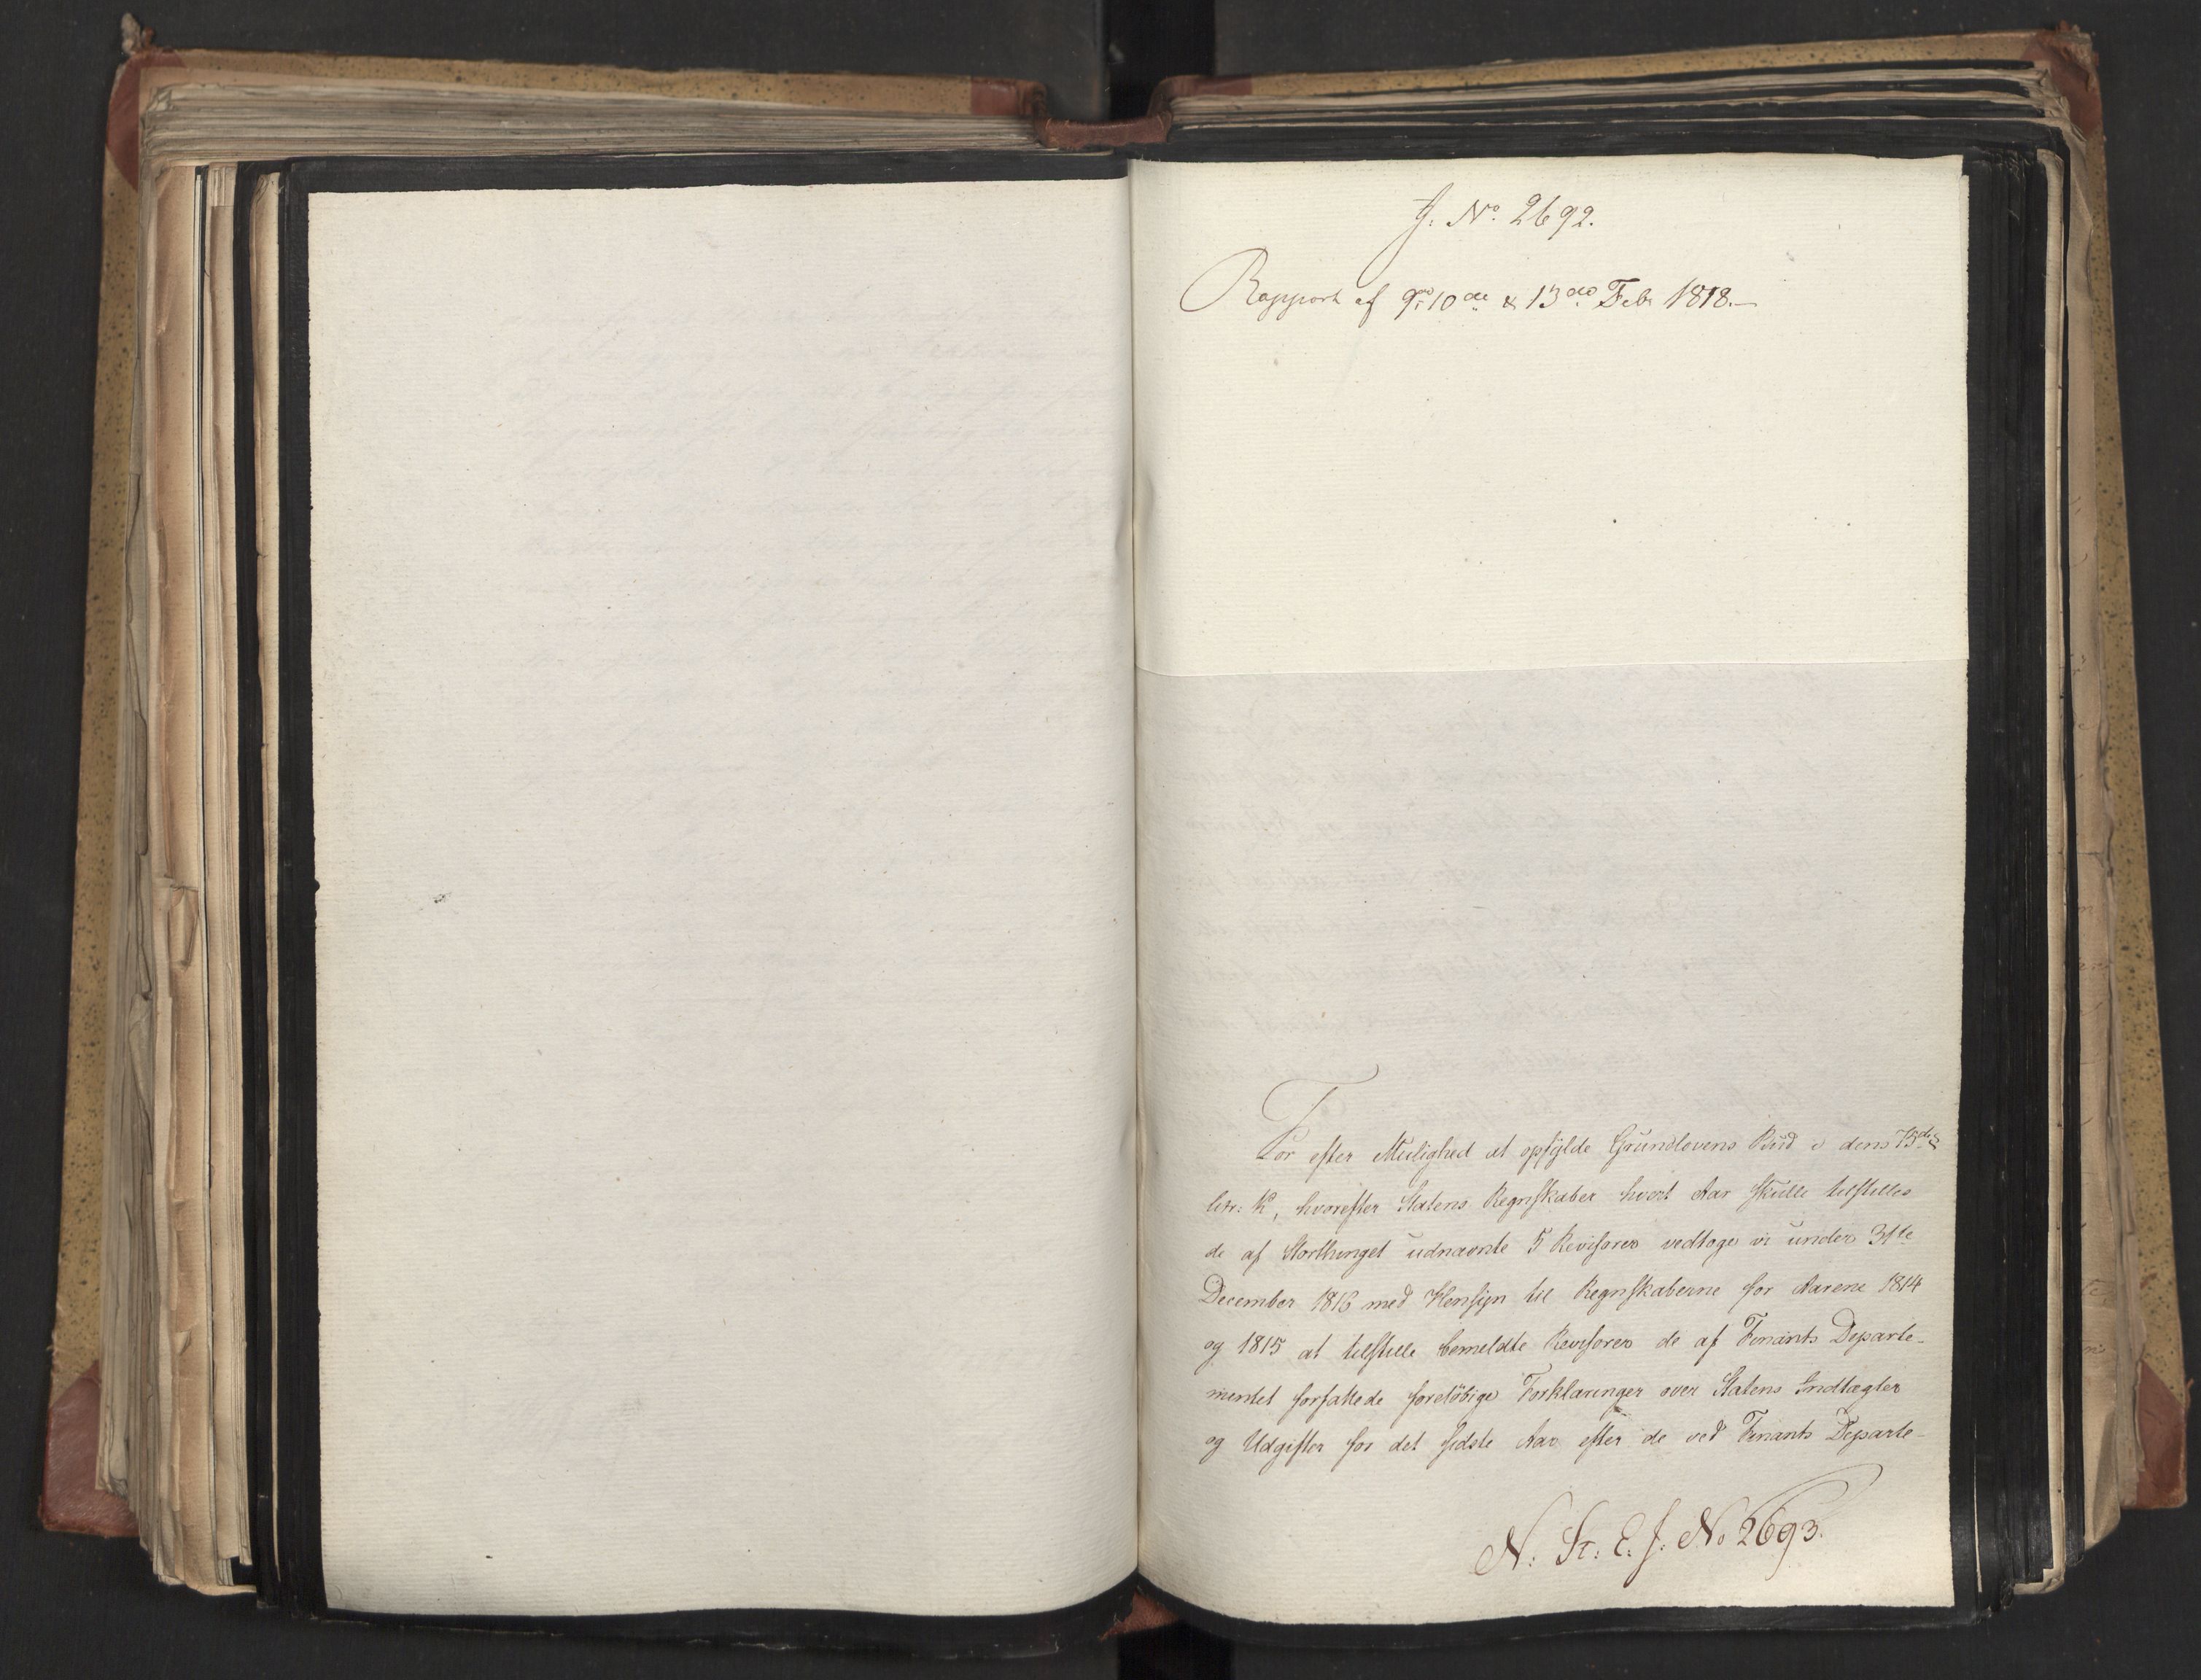 J. No. 2692.
Rapport af 9de 10de & 13de Feb 1818.—
For efter Mulighed at opfylde Grundlovens Bud i dens 75de §
litr: K, hvorefter Statens Regnskaber hvert Aar skulle tilstilles
de af Storthinget udnævnte 5 Revisorer vedtoge vi under 31te
December 1816 med Hensyn til Regnskaberne for Aarene 1814
og 1815 at tilstille bemeldte Revisorer de af Finants Departe-
mentet forfattede foreløbige Forklaringer over Statens Indtægter
og Udgifter for det sidste Aar efter de ved Finants Departe-
N. St. E. J. No 2693.